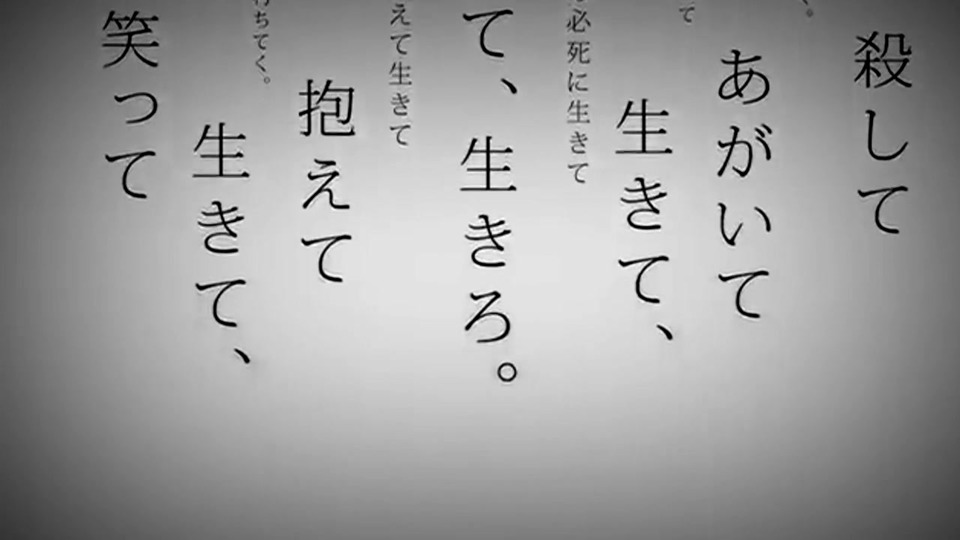 殺して
あがいて
て
生きて、
必死に生きて
て、生きろ。
えて生きて
抱えて
ちてく。
生きて、
笑って